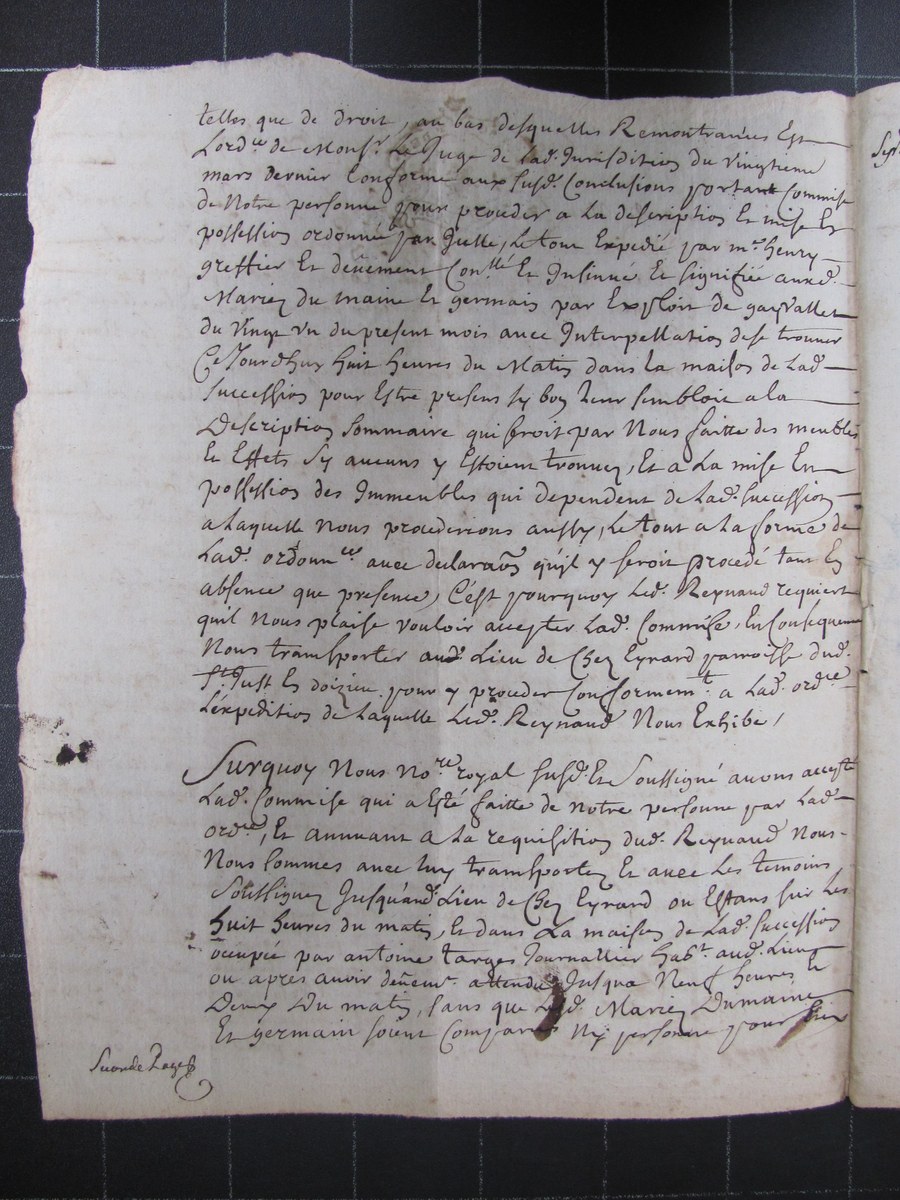 telles que de droit, au bas desquelles Remontrances Est
Lord.ce de Mons.r Le Juge de lad. Jurisdition du vingtieme
mars dernier Conforme aux susd. Conclusions portant Commise
de Notre personne pour proceder a La description Et mise En
possession ordonné par Icelle, Le tout Expedié par m.e henry
greffier Et deüement Con.llé Et Insinué Et signifiée auxd.
Mariez du maine Et germain par Exploit de Vallet
du Vingt du present mois avec Interpellation de se trouver
Ce Jourdhuy huit heures du Matin dans la maison de Lad.
succession pour Estre presens sy bon leur sembloit a la
Description sommaire qui seroit par Nous faitte des meubles
Et Effets sy aucuns y Estoient trouvez, Et a La mise En
possession des Immeubles qui dependent de Lad. succession
a laquelle Nous procederions aussy, Le tout a la forme de
Lad. ordonn.ce avec declaraõn quil y seroit procedé tant En
absence que presence, C'est pourquoy Led. Reynaud requiert
quil Nous plaise vouloir accepter Lad. Commise, En Consequence
Nous transporter aud. Lieu de Chez Eyrard parroisse dud.
S.t Just En doizieu pour y proceder Conformem.t a Lad. ord.ce
L'expedition de Laquelle Led. Reynaud Nous Exhibe,
Surquoy Nous No.re royal susd. Et Soussigné avons accepté
Lad. Commise qui a Esté faitte de Notre personne par Lad.
ord.ce, Et annuant a La requisition dud. Reynaud Nous
Nous sommes avec luy transportez Et avec Les temoins
Soussignez Jusqu'aud. Lieu de Chez Eyrard ou Estans sur Les
huit heures du matin, Et dans La maison de Lad. Succession
occupée par antoine targes Journallier hab.t aud. Lieu
ou apres avoir deüem.t attendu Jusqua Neuf heures Et
Demy Du matin, sans que Lesd. Mariez Dumaine
Et germain soient Comparus Ny personne pour Eux
Seconde Page